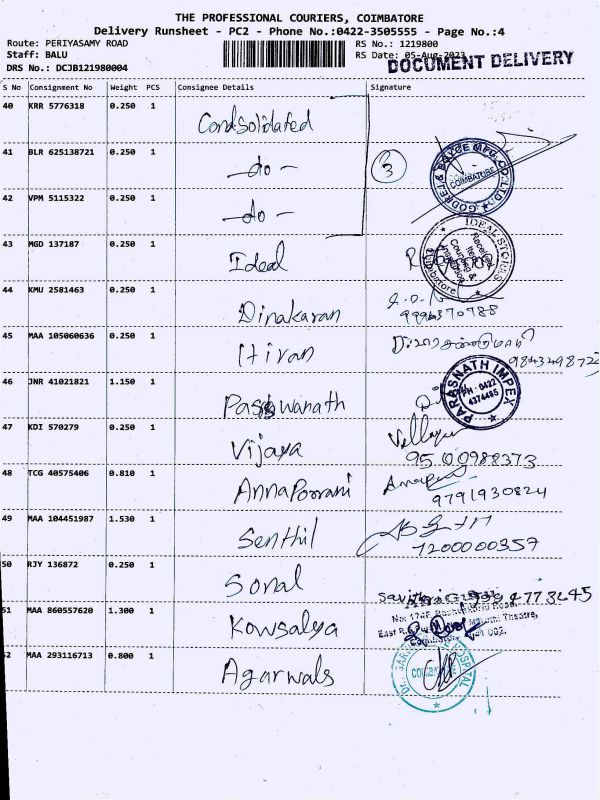 THE PROFESSIONAL COURIERS, COIMBATORE
Delivery Runsheet - PC2 - Phone No.:0422-3505555 - Page No.:4
Route: PERIYASAMY ROAD
RS No.: 1219800
Staff: BALU
RS Date: 05-Aug-2023
DOCUMENT DELIVERY
DRS No.: DCJB121980004
S No Consignment No Weight PCS Consignee Details Signature
40 KRR 5776318 0.250 1 Condsolidated
41 BLR 625138721 0.250 1 - do - 3
GODREJ & BOYCE MFG. CO. LTD. COIMBATORE
42 VPM 5115322 0.250 1 - do -
43 MGD 137187 0.250 1 Ideal
IDEAL STORES Coimbatore
44 KMU 2581463 0.250 1 Dinakaran
9994370788
45 MAA 105060636 0.250 1 Hiran
46 JNR 41021821 1.150 1 Passwanath
PARASNATH IMPEX PH - 0422 4374485
47 KDI 570279 0.250 1 Vijaya
9500988373
48 TCG 40575406 0.810 1 AnnaPoorani
9791930824
49 MAA 104451987 1.530 1 Senthil
7200000357
50 RJY 136872 0.250 1 Sonal
51 MAA 860557620 1.300 1 Kowsalya
52 MAA 293116713 0.800 1 Agarwals
HOSPITAL